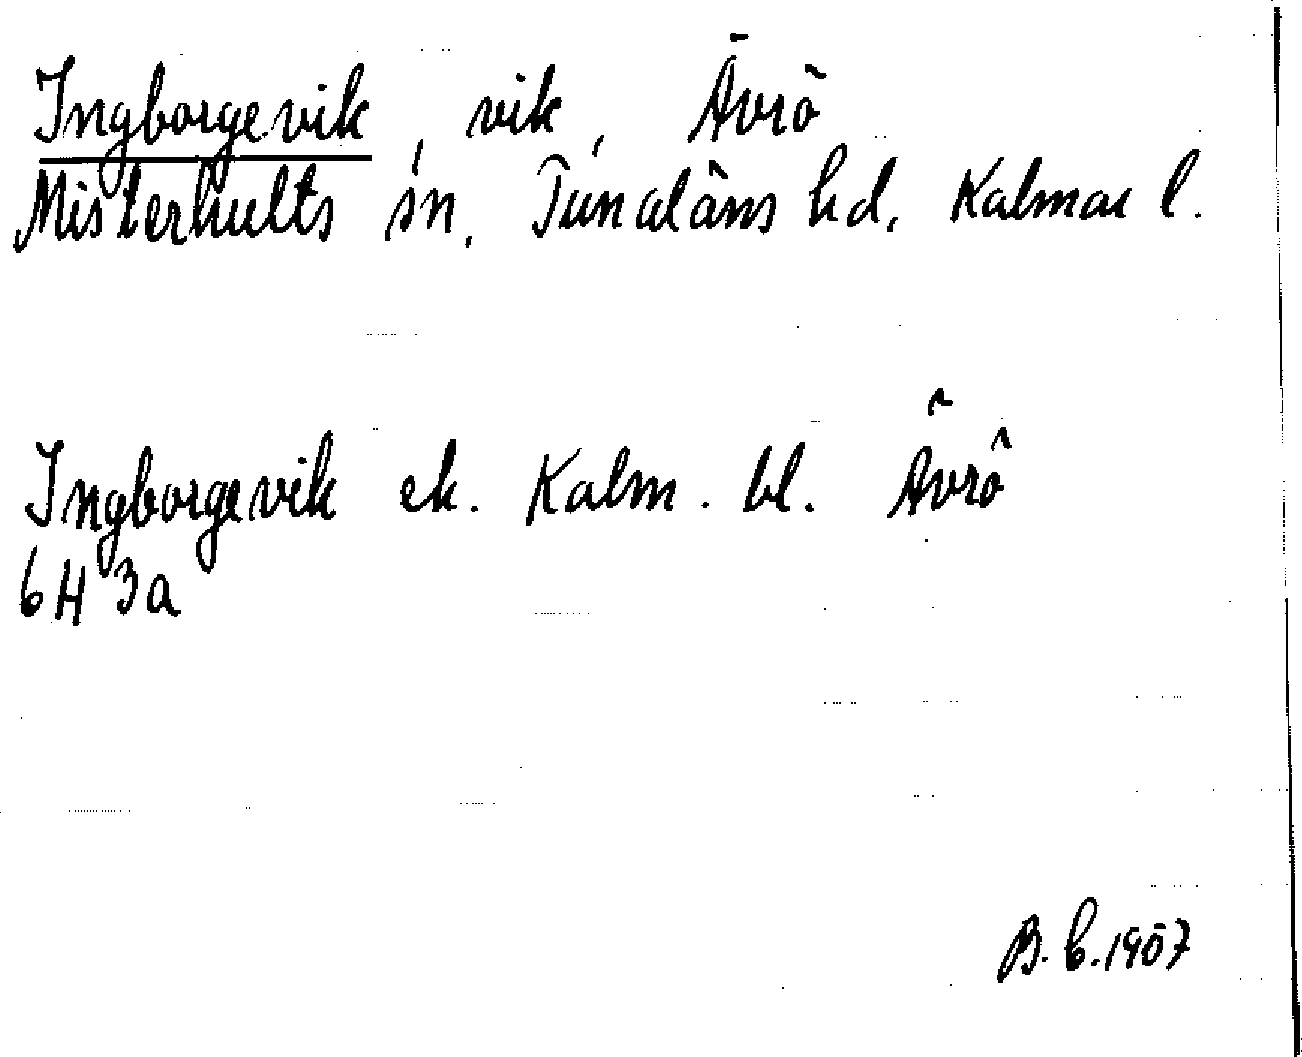 Ingborgevik, vik, Ävrö
Misterhults sn, Tunaläns hd, Kalmar l.
Ingborgevik ek. Kalm. bl. Ävrö
6H3a
B.b.1907